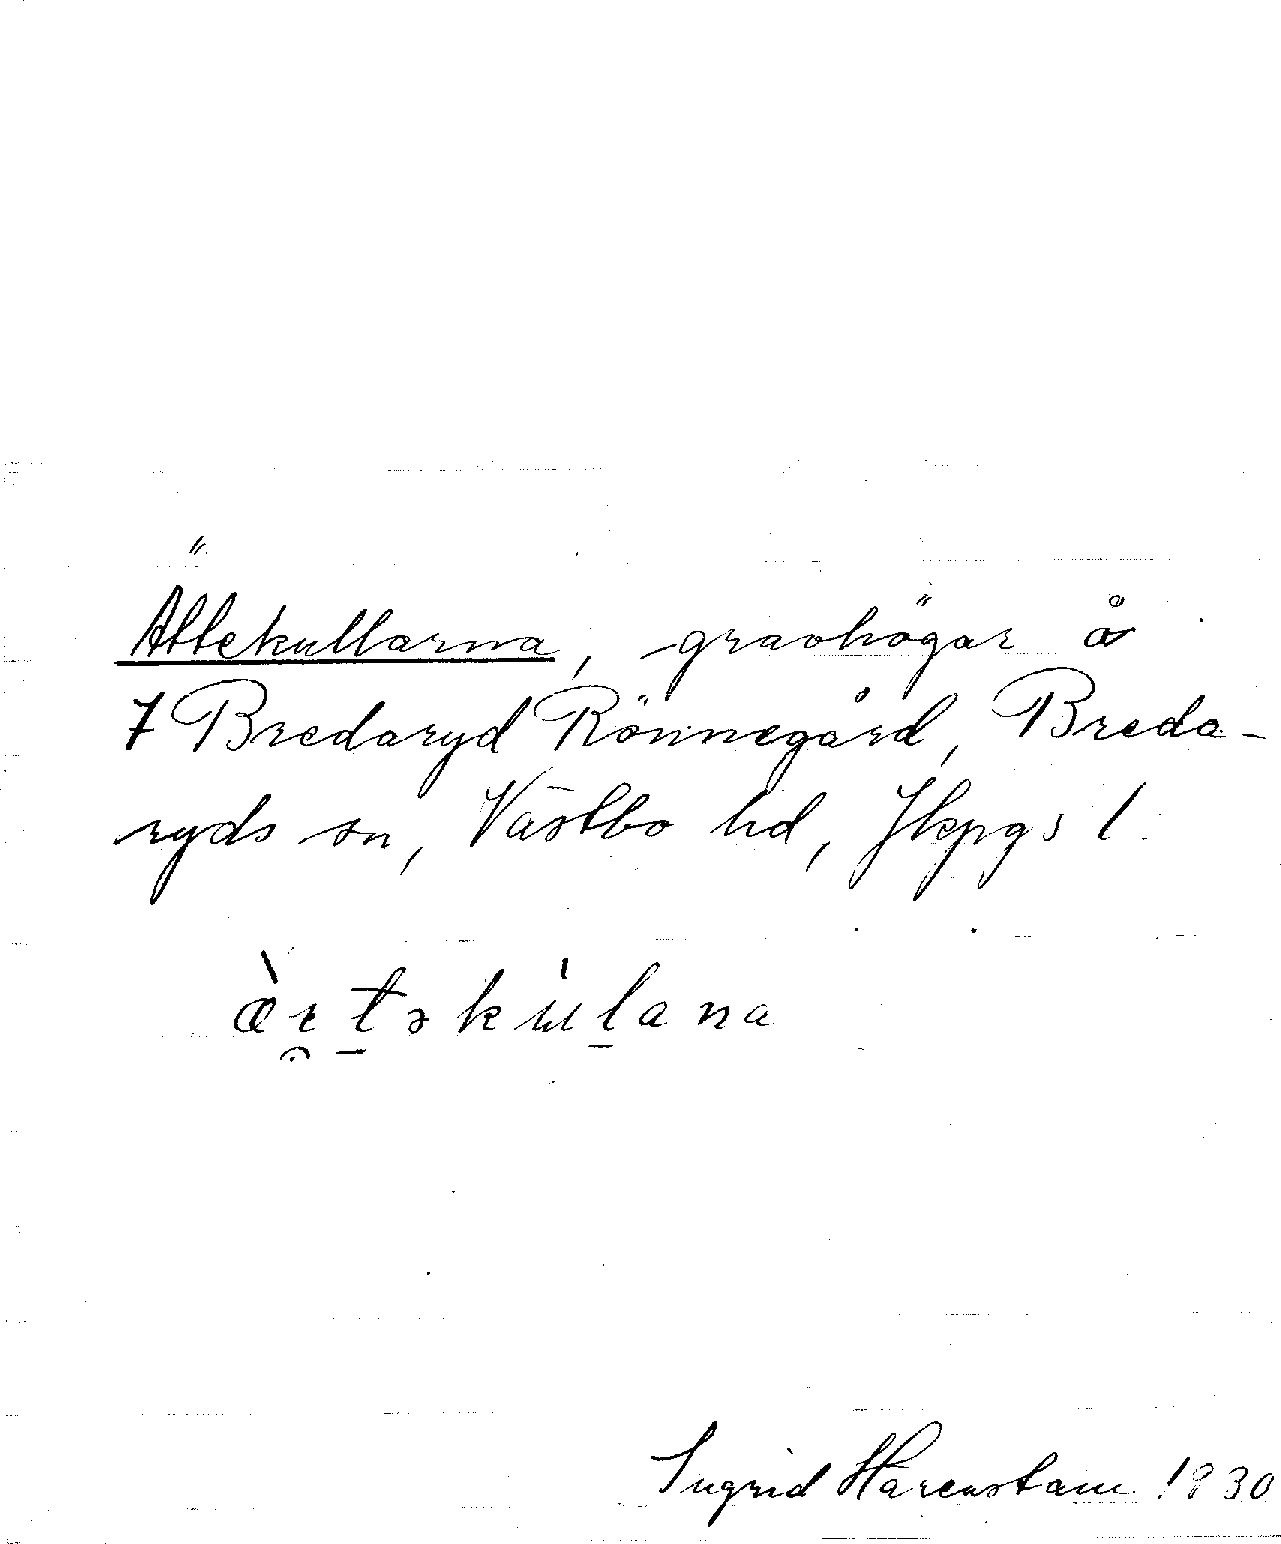 Ättekullarna, gravhögar å
7 Bredaryd Rönnegård, Breda-
ryds sn, Västbo hd, Jkpgs l
Ingrid Härenstam 1930